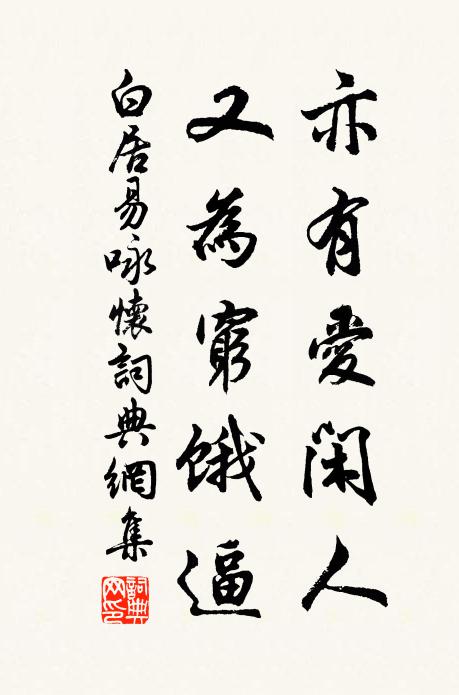 亦有愛閑人
又為窮餓逼
白居易詠懷詞典網集
詞典網印